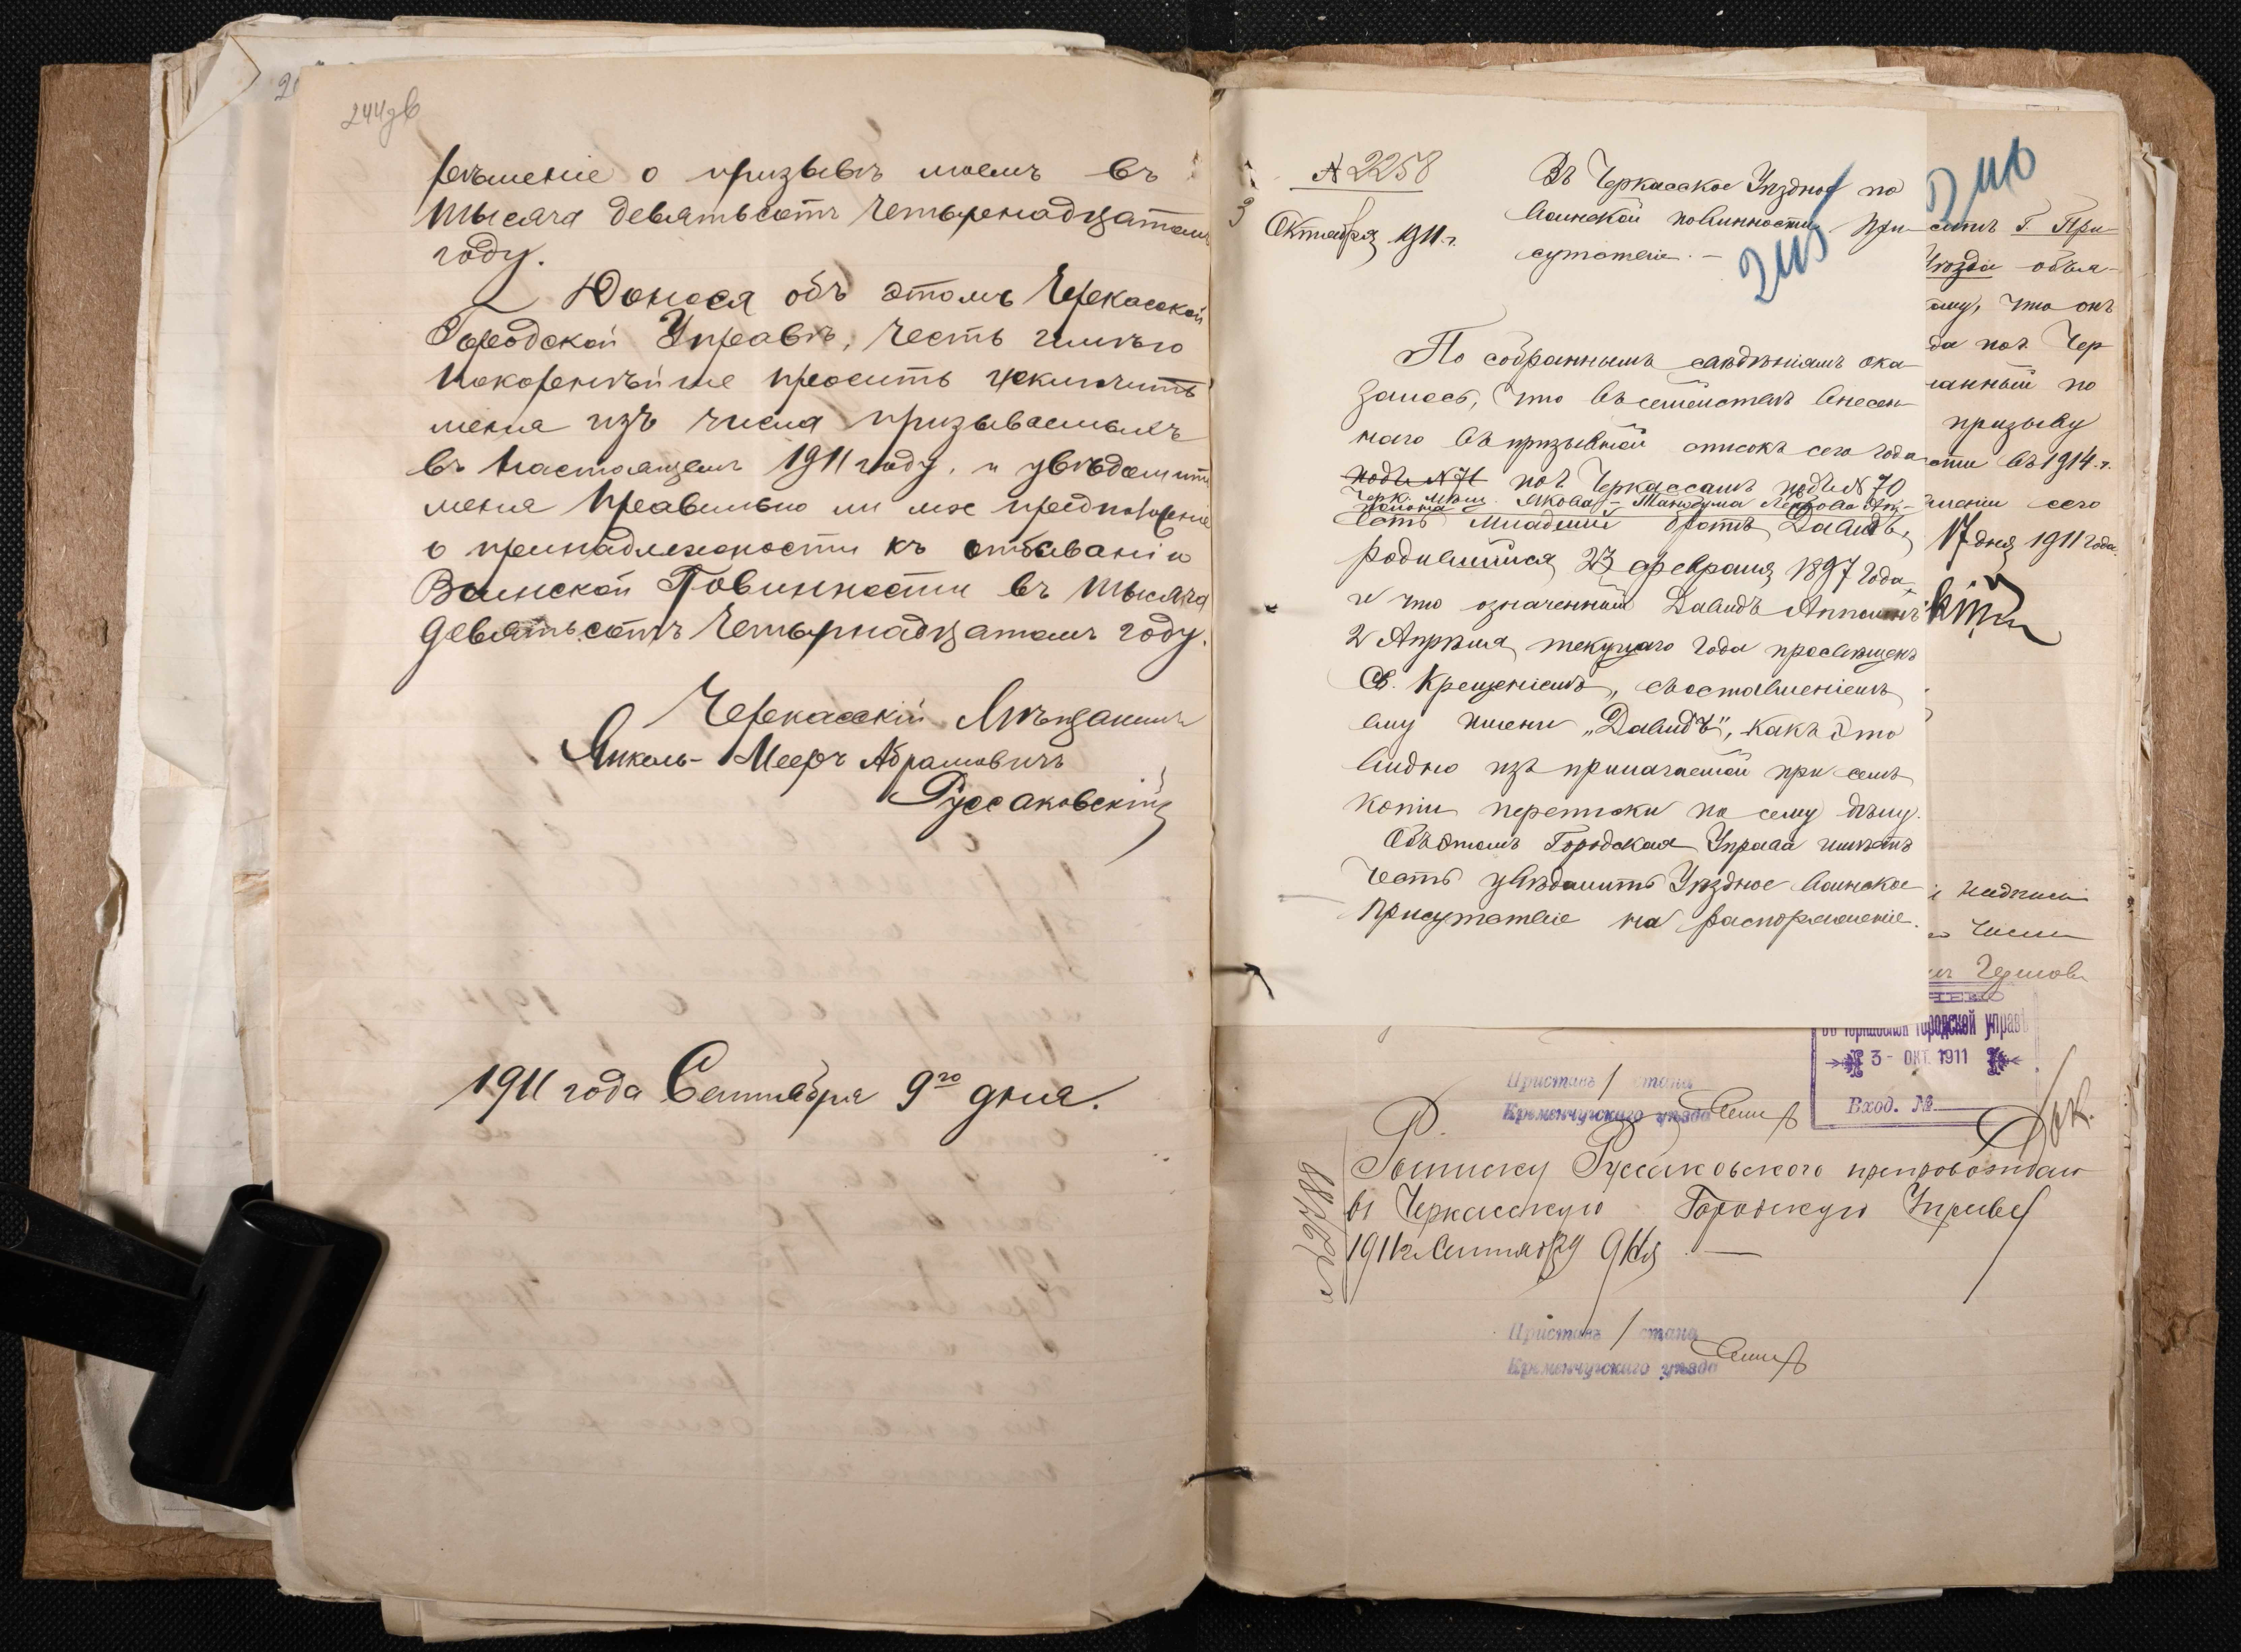 244об
рѣшеніе о призывѣ моемъ въ
тысяча девятьсотъ четыренадцатомъ
году.
Донося объ этомъ Черкасской
Городской Управѣ, честь имѣю
покорнѣйше просить исключить
меня изъ числа призываемыхъ
въ настоящемъ 1911 году, и увѣдомить
меня правильно ли мое предположеніе
о принадлежности къ отбыванію
Воинской Повинности въ тысяча
девятьсотъ четырнадцатомъ году.
Черкасскій Мѣщанинъ
Янкель-Мееръ Абрамовичъ
Руссаковскій
1911 года Сентября 9го дня.
№ 2258
3 Октября 1911 г.
Въ Черкасское Уѣздное по
воинской повинности При-
сутствіе.
245
По собраннымъ свѣдѣніямъ ока-
залось, что въ семействѣ внесен-
наго въ призывной списокъ сего года
подъ № 71 по г. Черкассамъ подъ № 70
Черк. мѣщ. Якова-Танхума
есть младшій братъ Давидъ,
родившійся 23 февраля 1897 года
и что означенный Давидъ
2 Апрѣля текущаго года просвѣщенъ
Св. Крещеніемъ, съ оставленіемъ
ему имени „Давидъ", какъ это
видно изъ прилагаемой при семъ
копіи переписки по сему дѣлу.
Объ этомъ Городская Управа имѣетъ
честь увѣдомить Уѣздное воинское
Присутствіе на распоряженіе.
246
Г. При-
Уѣзда объя-
ему, что онъ
да по г. Чер
ванный по
призыву
сти въ 1914 г.
сего
17 дня 1911 года.
надписи
числи
въ Черкасской городской управѣ
3 - ОКТ. 1911
Вход. №
Приставъ 1 стана
Кременчугскаго уѣзда
Р.
Росписку Руссаковского препровождаю
въ Черкасскую Городскую Управу
1911 г. Сентября 9 дня
Приставъ 1 стана
Кременчугскаго уѣзда